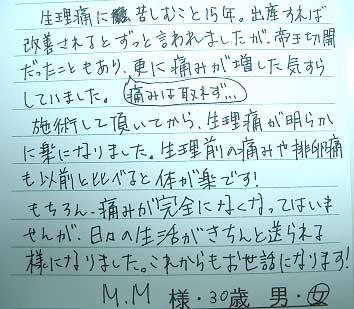 生理痛に苦しむこと15年。出産すれば
改善されるとずっと言われましたが、帝王切開
だったこともあり、更に痛みが増した気すら
していました。 痛みは取れず…
施術して頂いてから、生理痛が明らか
に楽になりました。生理前の痛みや排卵痛
も以前と比べると体が楽です!
もちろん、痛みが完全になくなってはいま
せんが、日々の生活がきちんと送られる
様になりました。これからもお世話になります!
M.M 様・30歳 男・女